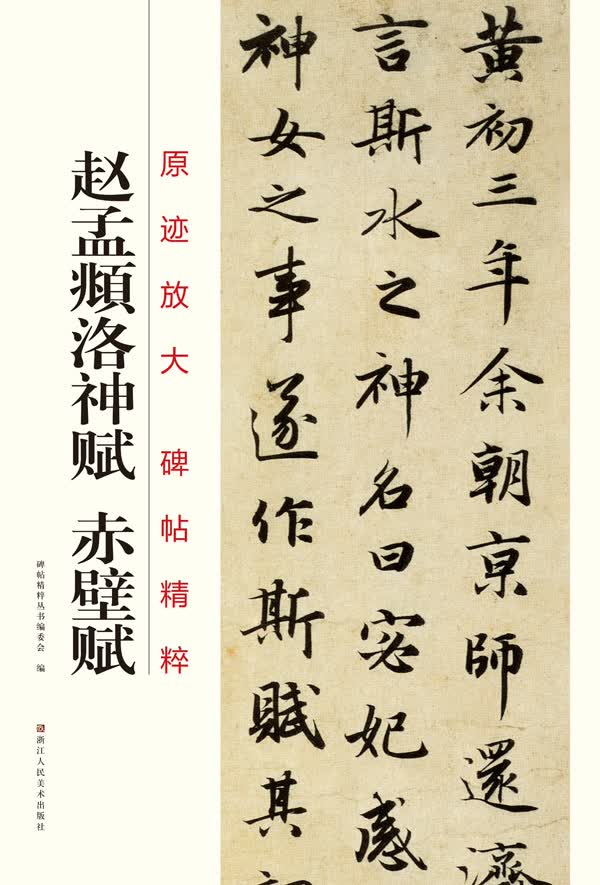 黄初三年余朝京師還濟
言斯水之神名曰宓妃感
神女之事遂作斯賦其
原迹放大 碑帖精粹
赵孟頫洛神赋 赤壁赋
碑帖精粹丛书编委会 编
浙江人民美术出版社